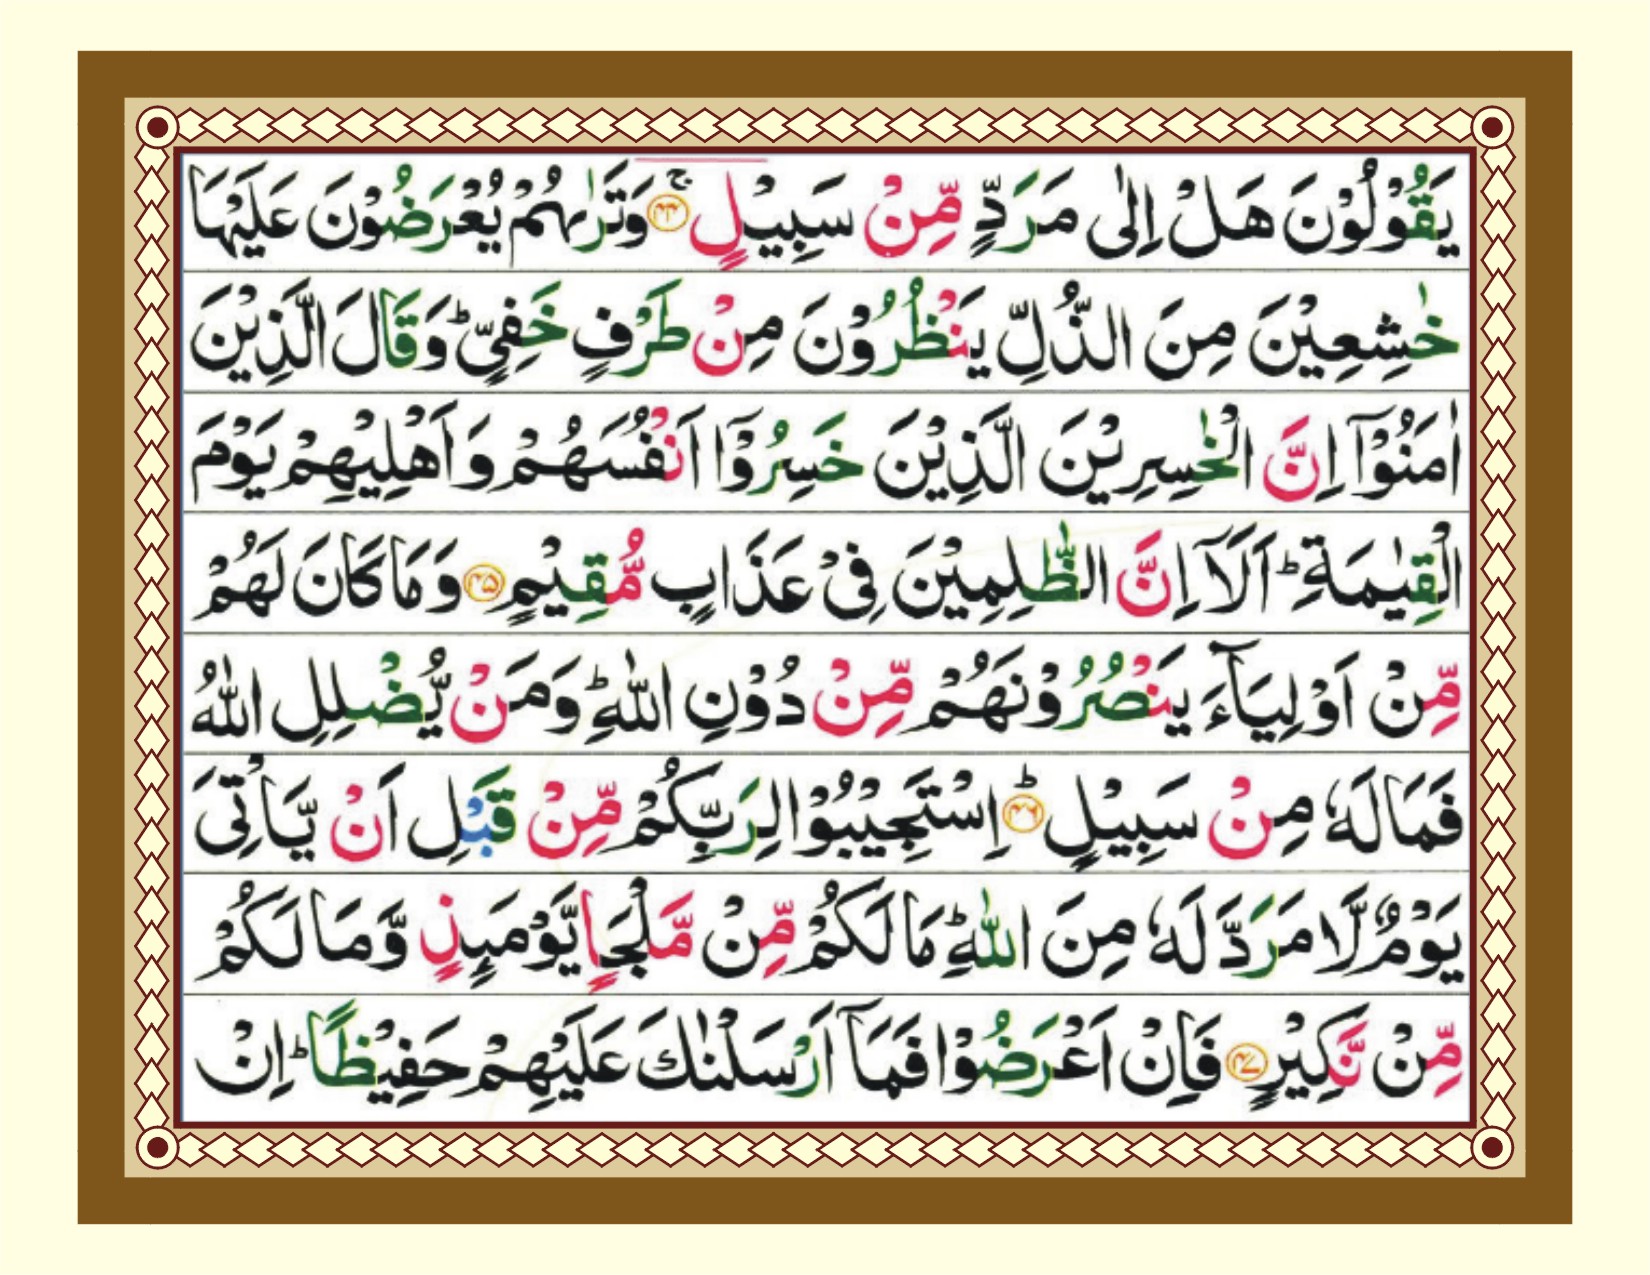 يَقُوْلُوْنَ هَلْ اِلٰى مَرَدٍّ مِّنْ سَبِيْلٍ ۚ‏﴿۴۴﴾ وَتَرٰىهُمْ يُعْرَضُوْنَ عَلَيْهَا
خٰشِعِيْنَ مِنَ الذُّلِّ يَنْظُرُوْنَ مِنْ طَرْفٍ خَفِيٍّ ؕ وَقَالَ الَّذِيْنَ
اٰمَنُوْۤا اِنَّ الْخٰسِرِيْنَ الَّذِيْنَ خَسِرُوْۤا اَنْفُسَهُمْ وَ اَهْلِيْهِمْ يَوْمَ
الْقِيٰمَةِ ؕ اَلَاۤ اِنَّ الظّٰلِمِيْنَ فِىْ عَذَابٍ مُّقِيْمٍ ﴿۴۵﴾ وَمَا كَانَ لَهُمْ
مِّنْ اَوْلِيَآءَ يَنْصُرُوْنَهُمْ مِّنْ دُوْنِ اللّٰهِ ؕ وَمَنْ يُّضْلِلِ اللّٰهُ
فَمَا لَهٗ مِنْ سَبِيْلٍ ؕ﴿۴۶﴾ اِسْتَجِيْبُوْا لِرَبِّكُمْ مِّنْ قَبْلِ اَنْ يَّاْتِىَ
يَوْمٌ لَّا مَرَدَّ لَهٗ مِنَ اللّٰهِ ؕ مَا لَكُمْ مِّنْ مَّلْجَاٍ يَّوْمَىِٕذٍ وَّمَا لَكُمْ
مِّنْ نَّكِيْرٍ ﴿۴۷﴾ فَاِنْ اَعْرَضُوْا فَمَاۤ اَرْسَلْنٰكَ عَلَيْهِمْ حَفِيْظًا ؕ اِنْ